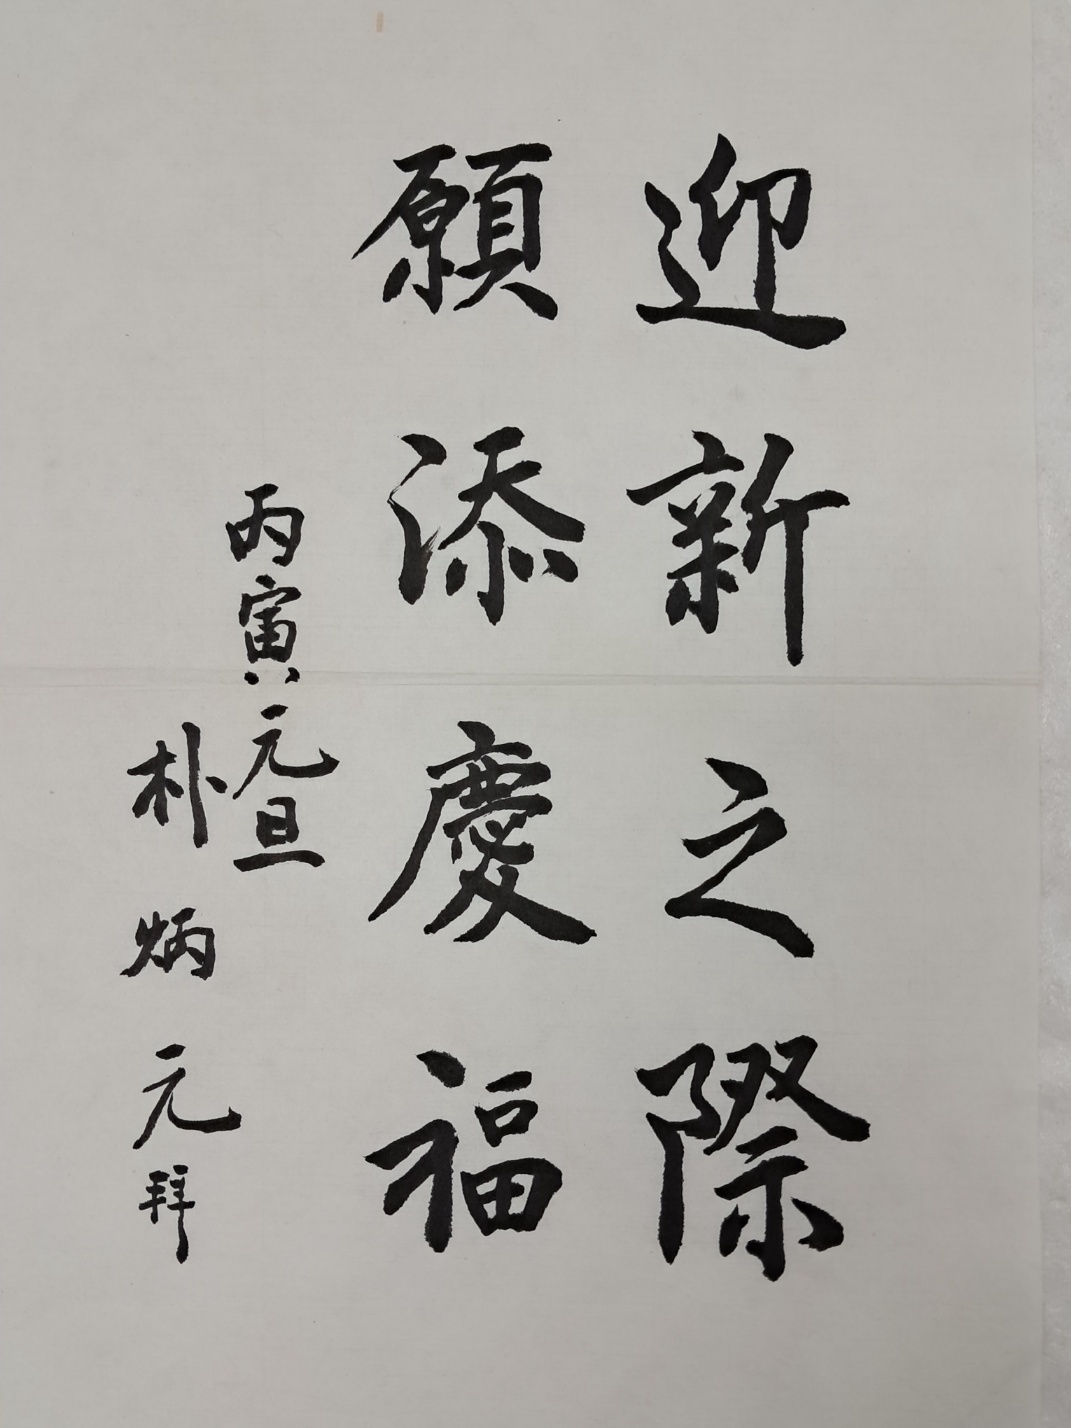 迎新之際
願添慶福
丙寅元旦
朴炳元拜